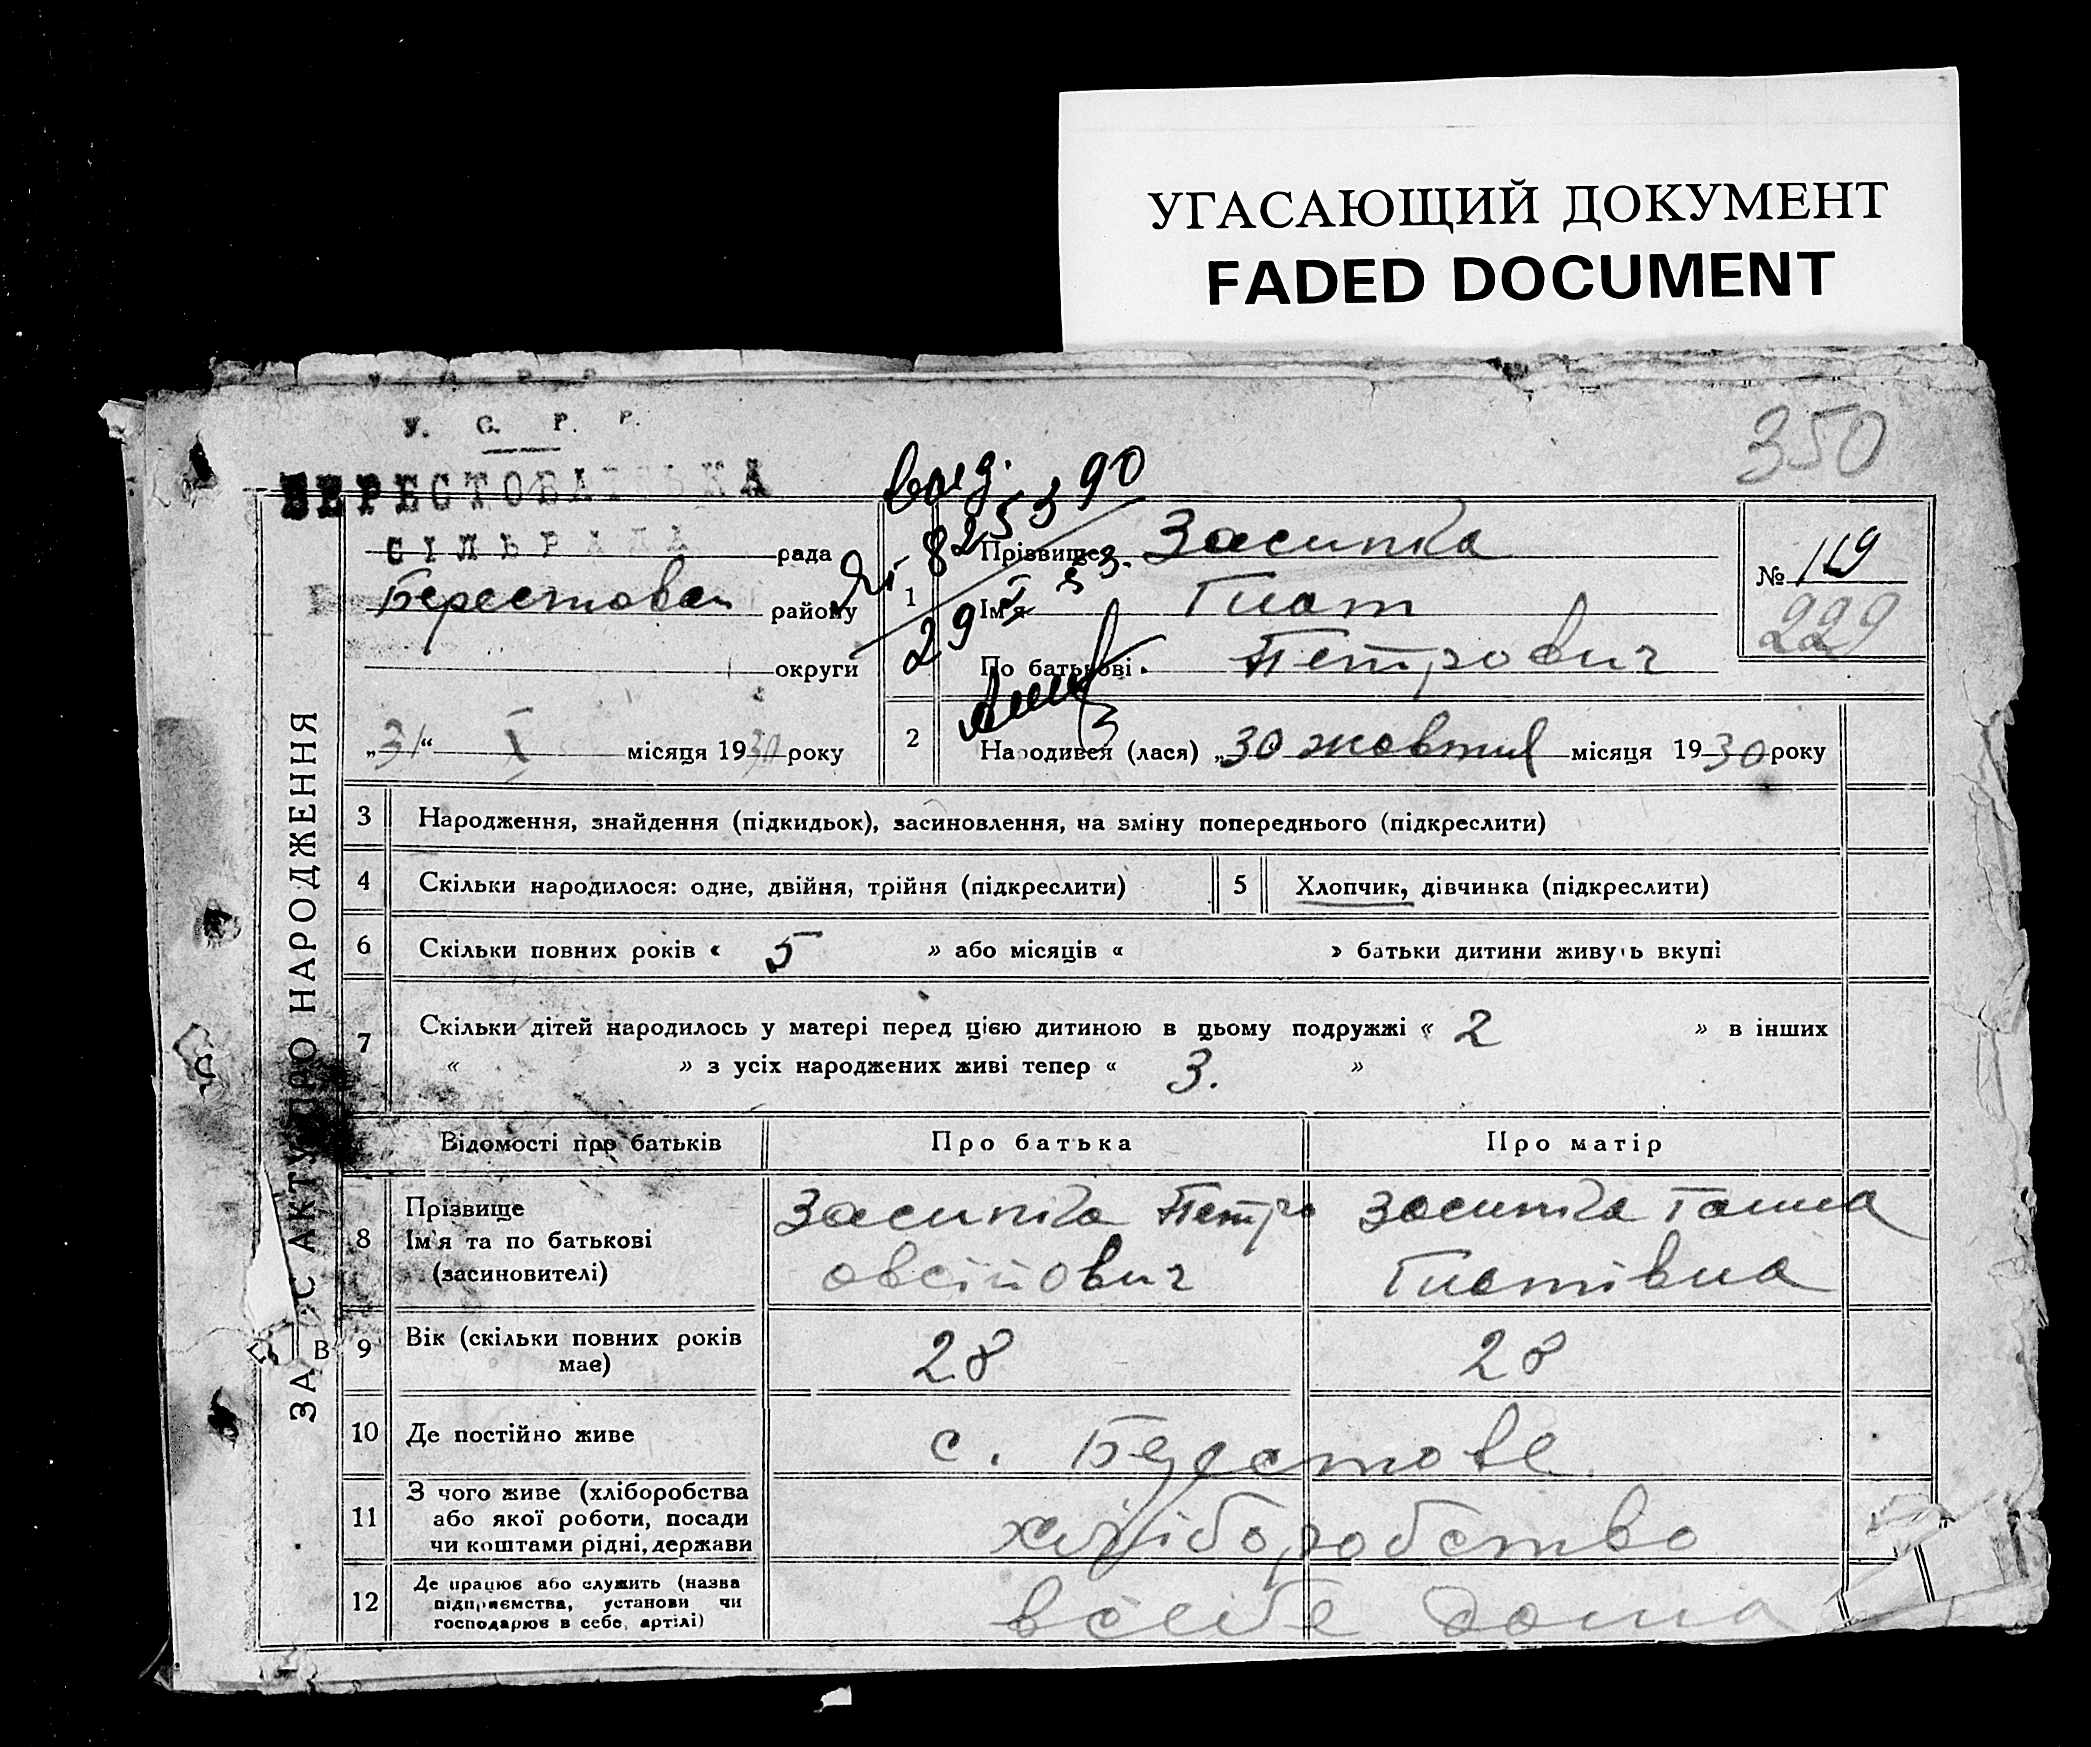 УГАСАЮЩИЙ ДОКУМЕНТ
FADED DOCUMENT
У. С. Р. Р.
350
БЕРЕСТОВАНСЬКА
СІЛЬРАДА рада
району
округи
„31“ X місяця 1930 року
1
Прізвище Засипка
Ім'я Гнат
По батькові Петрович
№ 119
229
2 Народився (лася) „30 жовтня місяця 1930 року
ЗАПИС АКТУ ПРО НАРОДЖЕННЯ
3 Народження, знайдення (підкидьок), засиновлення, на зміну попереднього (підкреслити)
4 Скільки народилося: одне, двійня, трійня (підкреслити) 5 Хлопчик, дівчинка (підкреслити)
6 Скільки повних років « 5 » або місяців « » батьки дитини живуть вкупі
7 Скільки дітей народилось у матері перед цією дитиною в цьому подружжі « 2 » в інших
« » з усіх народжених живі тепер « 3. »
Відомості про батьків Про батька Про матір
8 Прізвище
Ім'я та по батькові
(засиновителі)
Засипка Петро
овсійович
Засипка Ганна
Гнатівна
9 Вік (скільки повних років
має)
28 28
10 Де постійно живе с. Берестове
11 З чого живе (хліборобства
або якої роботи, посади
чи коштами рідні, держави
хліборобство
12 Де працює або служить (назва
підприємства, установи чи
господарює в себе, артілі)
всебе дома